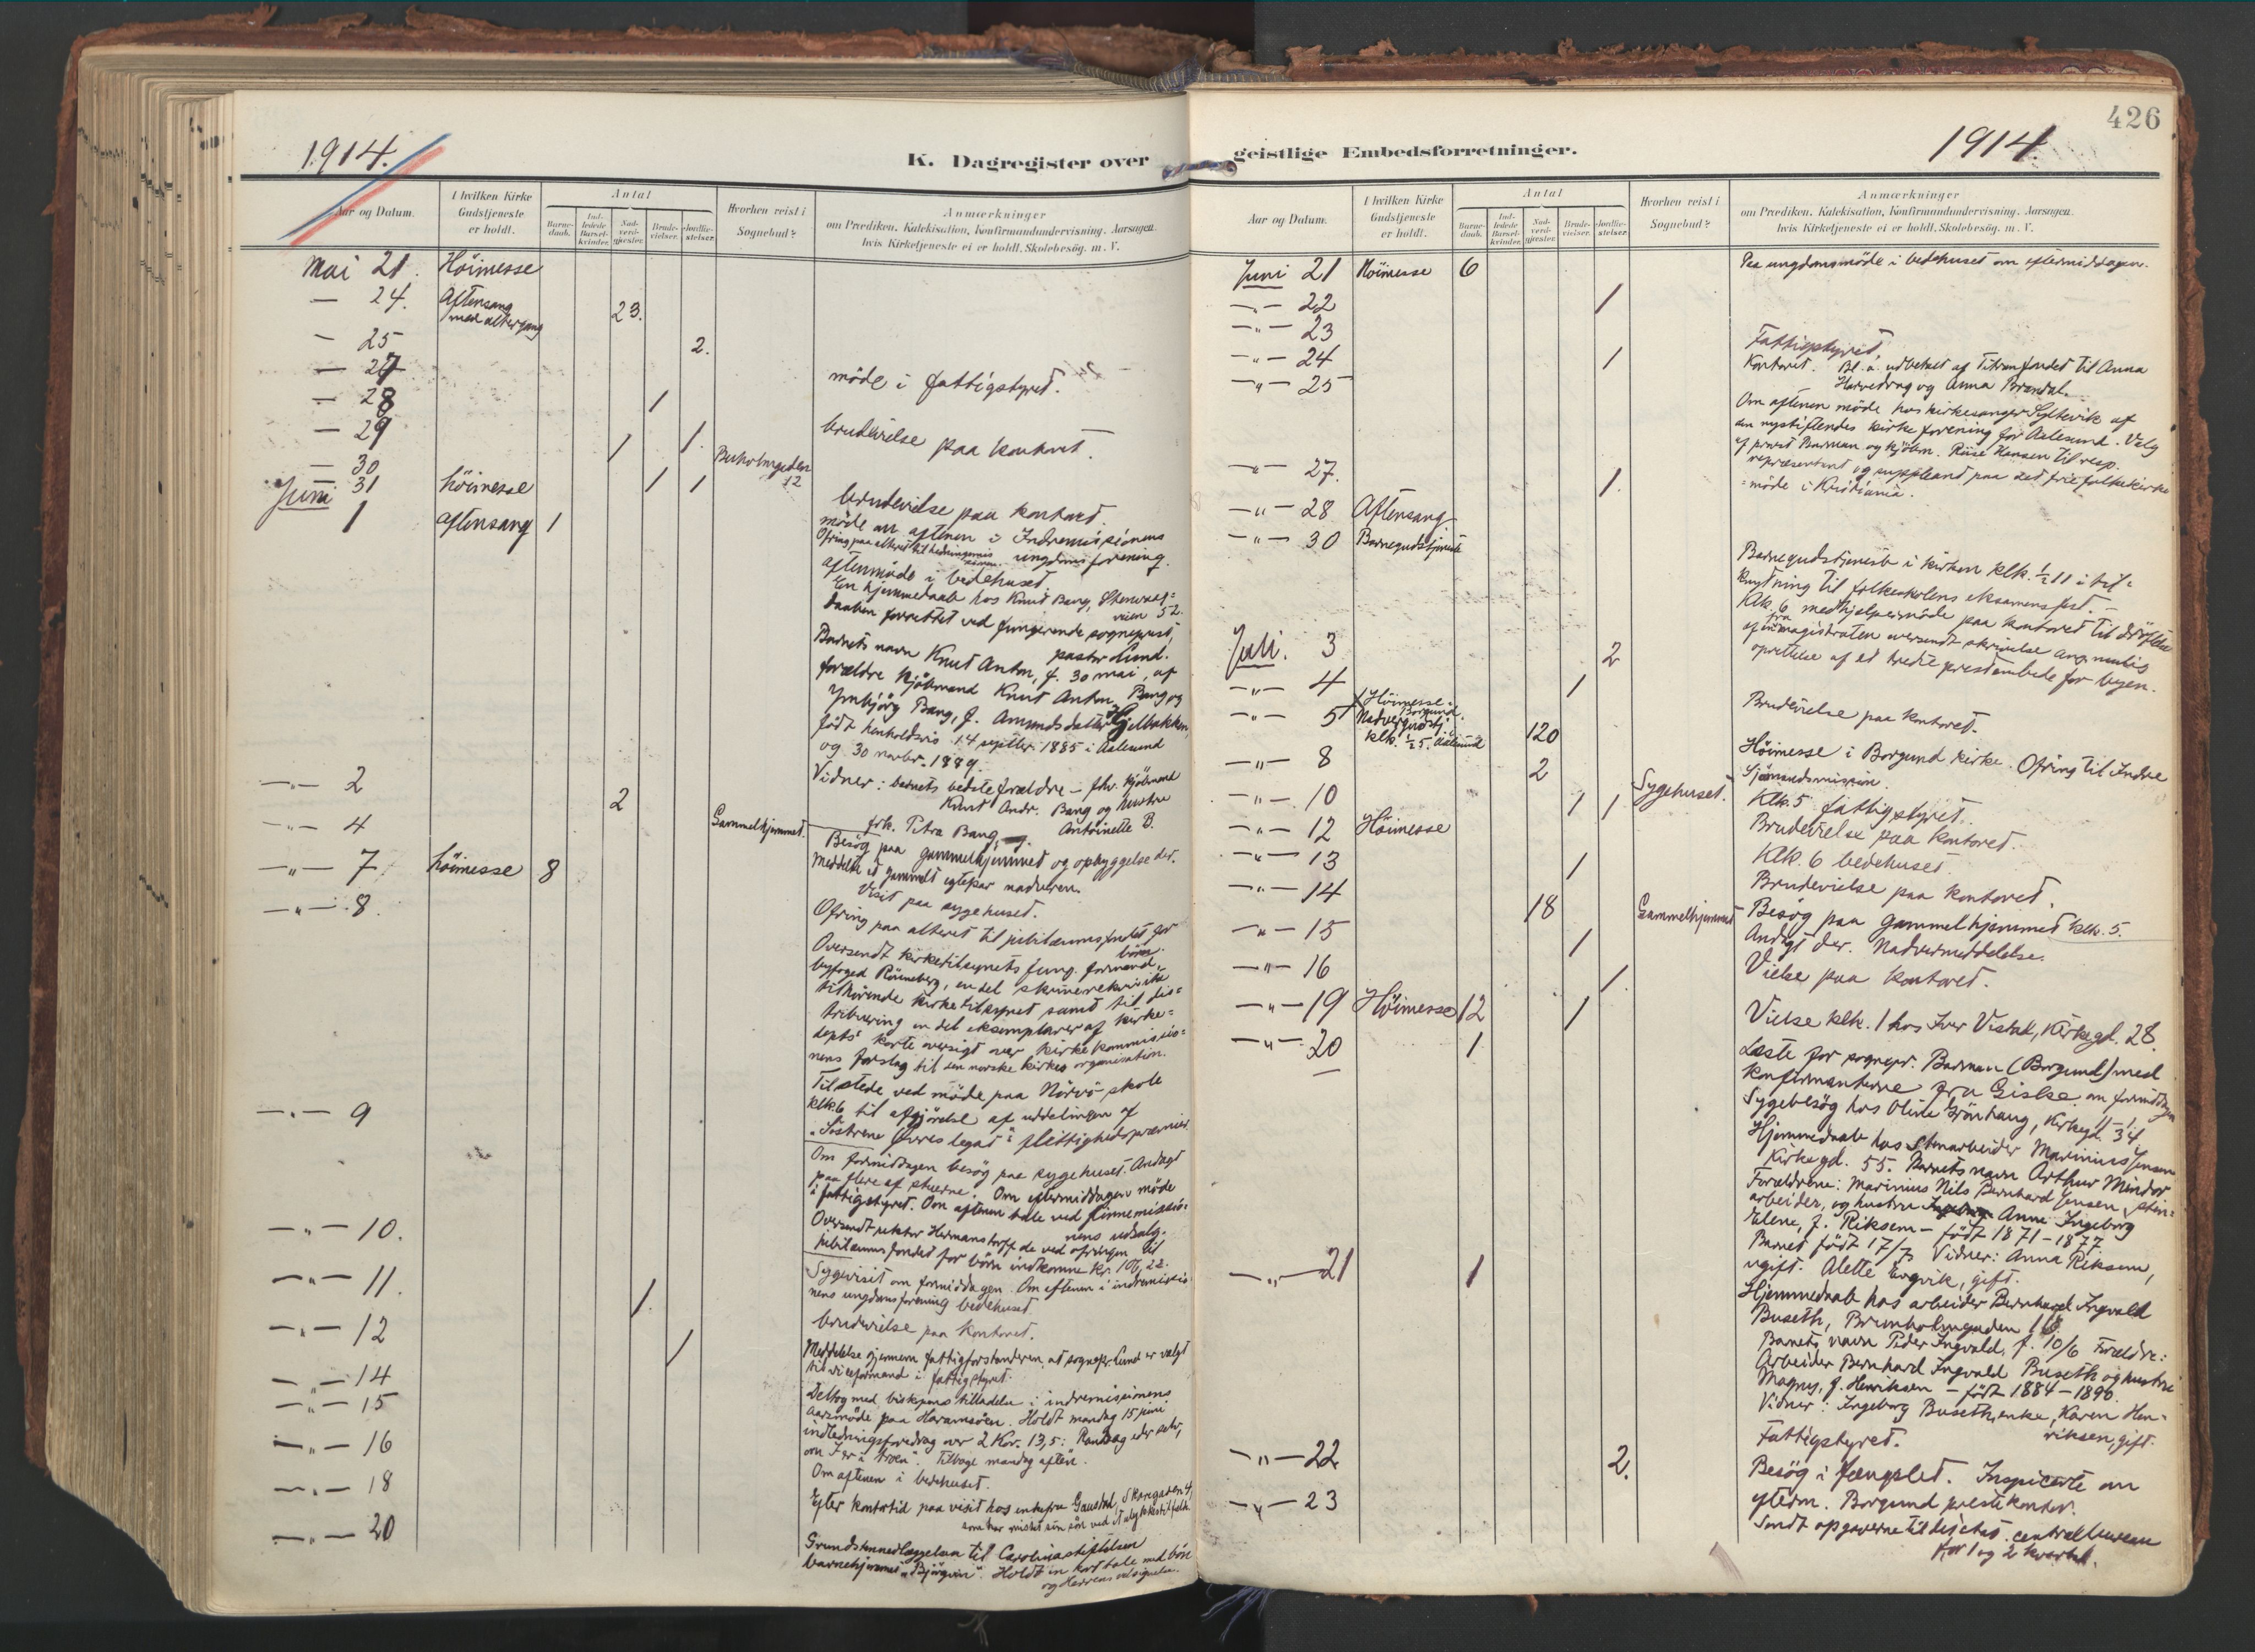 1914.
K. Dagregister over
Aar og Datum.
I hvilken Kirke
Gudstjeneste
er holdt.
Antal
Barne-
daab.
Ind-
ledede
Barsel-
kvinder.
Nad-
verd-
gjester.
Brude-
vielser.
Jordfæ-
stelser.
Hvorhen reist i
Sognebud?
Anmærkninger
om Prædiken, Katekisation, Konfirmandundervisning. Aarsagen,
hvis Kirketjeneste ei er holdt, Skolebesög. m. V.
Mai 21. Höimesse
— 24. Aftensang
med altergang 23.
— 25 2.
— 27 möde i fattigstyret.
— 28 1
— 29 1 1. brudevielse paa kontoret.
— 30
— 31 höimesse 1 1
12
Juni 1 aftensang 1
brudevielse paa kontoret.
möde om aftenen i Indremissionens
ungdomsforening.
aftenmöde i bedehuset
En hjemmedaab hos Knut Bang, Stenvaag-
veien 52.
daaben forrettet ved fungerende sogneprest,
pastor Lund.
Barnets navn Knut Anton, f. 30 mai, af
forældre kjöbmand Knut Anton Bang og
Ynbjörg Bang, f. Amundsdatter
födt henholdsvis 14 septbr. 1885 i Aalesund
og 30 novbr. 1889.
Vidner: barnets bedsteforældre – fhv. kjöbmand
Knut Andr. Bang og hustru
Antoinette B.
frk. Petra Bang,
—"— 2 2 Gammelhjemmet.
Besög paa gammelhjemmet og opbyggelse der.
Meddelte et gammelt egtepar nadveren.
—"— 4 Visit paa sygehuset.
—"— 7 höimesse 8
Ofring paa alteret til jubilæumsfondet for
börn.
—"— 8.
Oversendt kirketilsynets fung. formand,
byfoged Rönneberg, en del skriverekvisita
tilhörende kirketilsynet samt til dis-
tribuering en del eksemplarer af kirke-
depts korte oversigt over kirkekommissio-
nens forslag til den norske kirkes organisation.
Tilstede ved möde paa Nörvö skole
klk 6 til afgjörelse af uddelingen af
"Söstrene Övres legat": flittighedspræmier.
—"— 9
Om formiddagen besög paa sygehuset. Andagt
paa flere af stuerne. Om eftermiddagen möde
i fattigstyret. Om aftenen tale ved Finnemissio-
nens udsalg.
—"— 10.
Oversendt rektor Hermanstorff de ved ofringen til
jubilæumsfondet for börn indkomne kr. 106,22.
—"— 11. 1.
Sygevisit om formiddagen. Om aftenen i indremissio-
nens ungdomsforening bedehuset.
—"— 12 1
brudevielse paa kontoret.
Meddelelse gjennem fattigforstanderen, at sognepr. Lund er valgt
til viceformand i fattigstyret.
—"— 14
—"— 15
Deltog med biskopens tilladelse i indremissionens
aarsmöde paa Haramsöen. Holdt mandag 15 juni
indledningsforedrag over 2 Kor. 13,5: Ransag eder selv,
om I er i troen". Tilbage mandag aften.
—"— 16 Om aftenen i bedehuset.
—"— 18
Efter kontortid paa visit hos enkefru Gaustad, Skaregaden 4,
som har mistet sin sön ved et ulykkestilfelde.
—"— 20
Grundstensnedlæggelsen til Carolinastiftelsen
barnehjemmet "Björgvin". Holdt en kort tale med bön
og Herrens velsignelse.
426
geistlige Embedsforretninger.
1914.
Aar og Datum.
I hvilken Kirke
Gudstjeneste
er holdt.
Antal
Barne-
daab.
Ind-
ledede
Barsel-
kvinder.
Nad-
verd-
gjester.
Brude-
vielser.
Jordfæ-
stelser.
Hvorhen reist i
Sognebud?
Anmærkninger
om Prædiken, Katekisation, Konfirmandundervisning. Aarsagen,
hvis Kirketjeneste ei er holdt, Skolebesög. m. V.
Juni 21 Höimesse 6 Paa ungdomsmöde i bedehuset om eftermiddagen.
—"— 22 1
—"— 23 Fattigstyret.
—"— 24 1 Kontoret. Bl. a. udbetalt af Titranfondet til Anna
og Anna Brandal.
—"— 25
Om aftenen möde hos kirkesanger Syltevik af
den nystiftendes kirkeforening for Aalesund. Valg
af prost Barman og kjöbm. Riise Hansen til resp.
repræsentant og suppleant paa det frie folkekirke
-möde i Kristiania.
—"— 27. 1.
—"— 28 Aftensang
—"— 30 Barnegudstjeneste
Barnegudstjeneste i kirken klk. ½ 11 i til-
knytning til folkeskolens eksamensfest. –
Klk. 6 medhjelpermöde paa kontoret til dröftelse
af fra magistraten oversendt skrivelse ang. mulig
oprettelse af et tredie presteembede for byen.
Juli. 3 2
—"— 4 1 Brudevielse paa kontoret.
—"— 5 Höimesse
Borgund.
Nadvergudstj.
klk. ½ 5. Aalesund 120
Höimesse i Borgund kirke. Ofring til Indre
Sjömandsmission.
—"— 8 2 Sygehuset. Klk. 5 fattigstyret.
—"— 10 1 1 Brudevielse paa kontoret.
—"— 12 Höimesse Klk. 6 bedehuset.
—"— 13 1 Brudevielse paa kontoret.
—"— 14 18 Gammelhjemmet Besög paa Gammelhjemmet klk. 5.
Andagt der. Nadvermeddelelse.
—"— 15 1 Vielse paa kontoret.
—"— 16 1.
—"— 19 Höimesse 12 1 Vielse klk. 1 hos Iver Vistal, Kirkegd. 28.
—"— 20 1
Læste for sognepr. Barman (Borgund) med
konfirmanterne fra Giske om formiddagen
11-1.
Sygebesög hos Oline Grönhaug, Kirkegd. 34
Hjemmedaab hos stenarbeider Marinius Jensen
Kirkegd. 55. Barnets navn Arthur Mindor
Forældrene: Marinius Nils Bernhard Jensen, sten-
arbeider, og hustru Anne Ingeborg
Elene, f. Riksem – födt 1871 – 1877.
Barnet födt 17/7. Vidner: Anna Riksem,
ugift. Alette Engvik, gift.
—"— 21 1
Hjemmedaab hos arbeider Bernhard Ingvald
Buseth, Brunholmgaden
Barnets navn Peder Ingvald, f. 10/6 Forældre:
Arbeider Bernhard Ingvald Buseth og hustru
Magny, f. Henriksen – födt 1884 – 1890.
Vidner: Ingeborg Buseth, enke, Karen Hen-
riksen, gift.
Fattigstyret.
—"— 22 2.
Besög i fængslet. Inspicerte om
efterm. Borgund prestekontor.
—"— 23
Sendt opgaverne til det stat. centralbureau
for 1 og 2 kvartal.